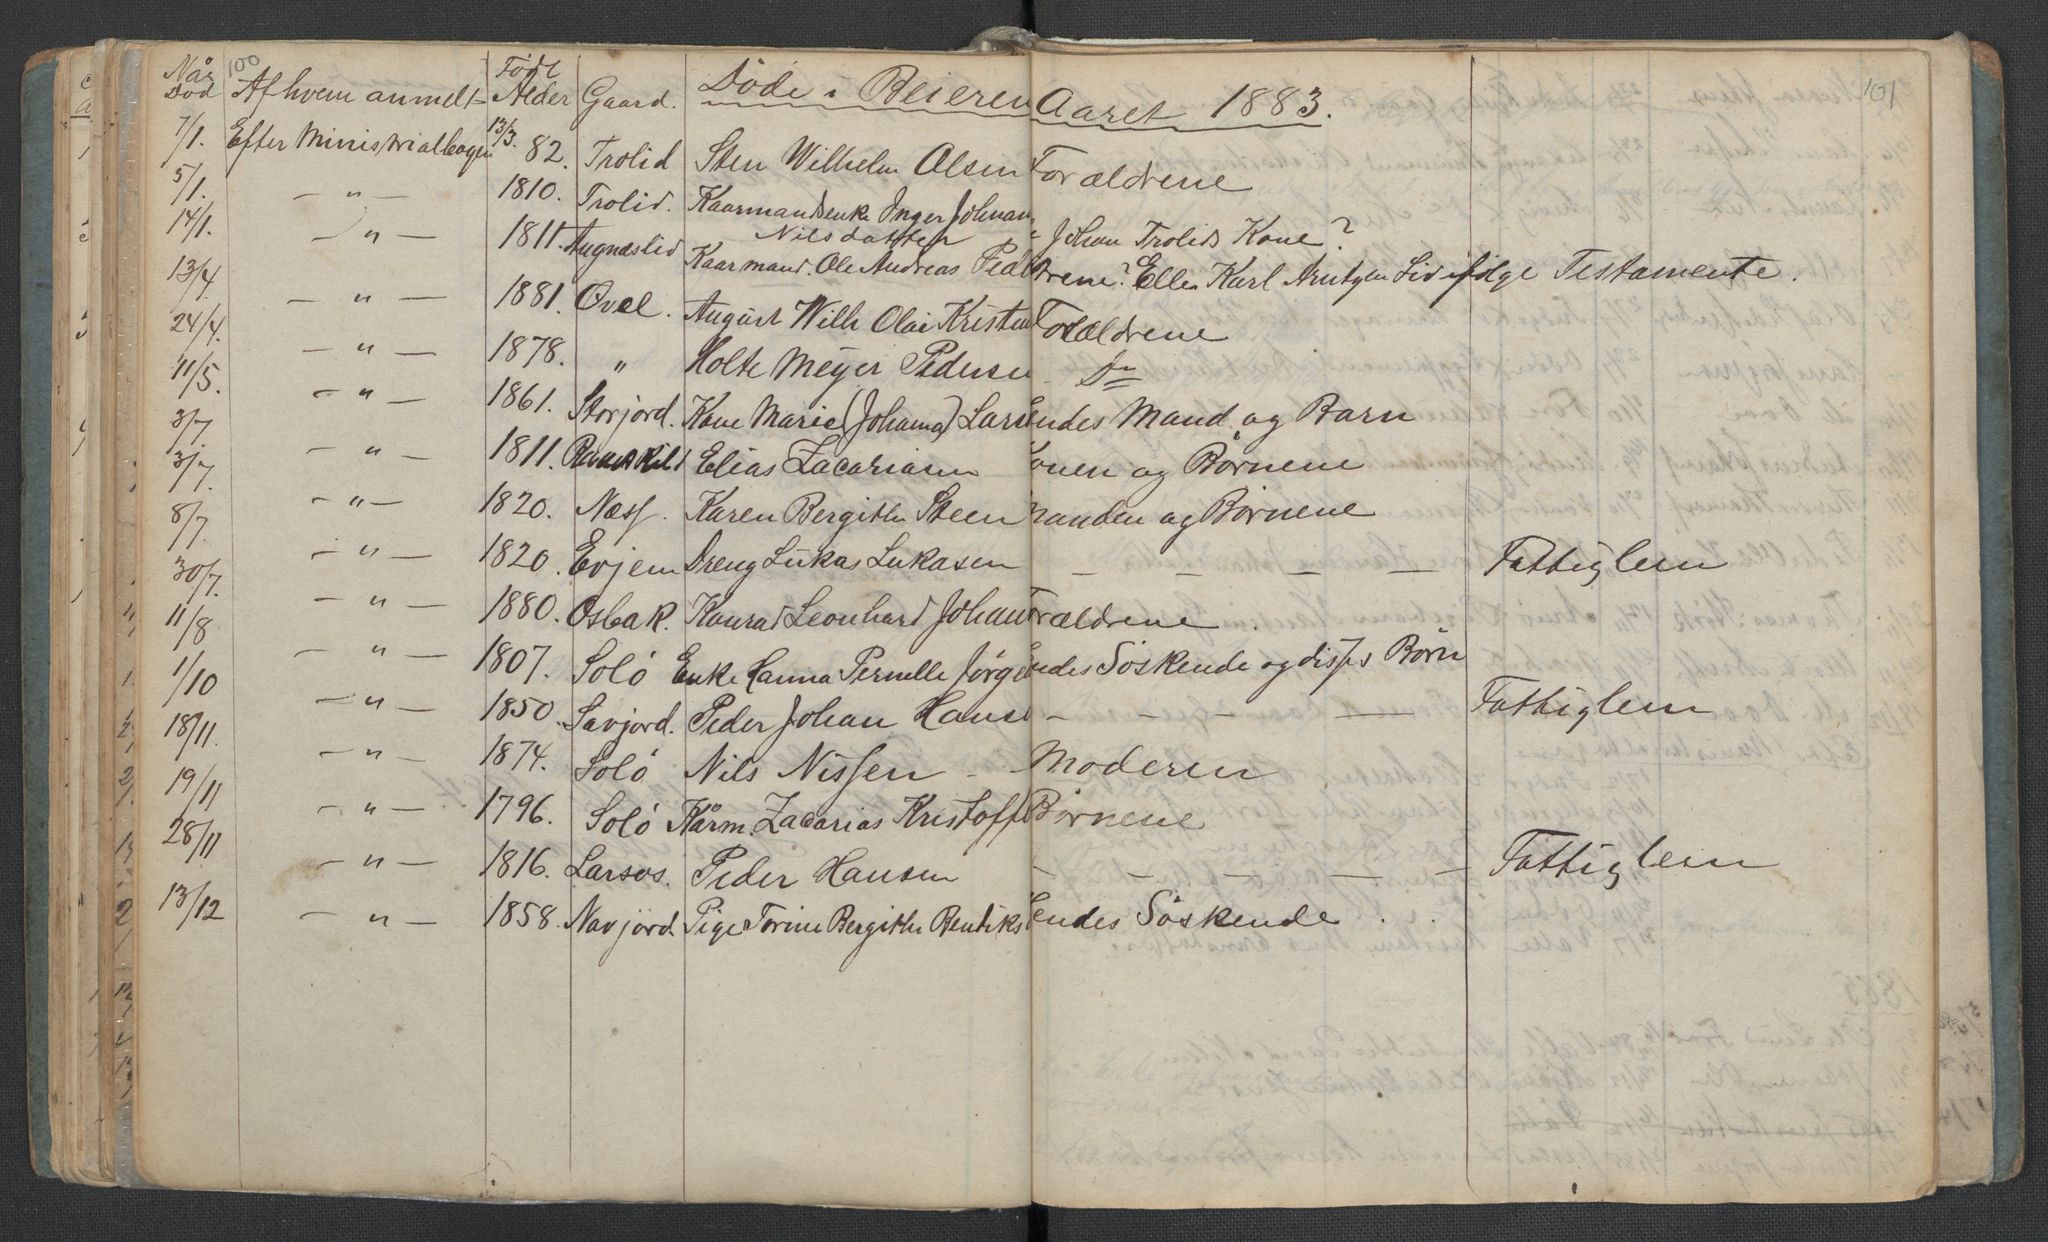 100
101
Når Død Af hvem anmelt Født Alder Gaard. Døde i Beieren Aaret 1883.
7/1. Efter Ministrialbogen 13/3. 82. Trolid Sten Wilhelm Olsen Forældrene
5/1. — " — 1810. Trolid. Kaarmandsenke Inger Johan
Nilsdatter Johan Trolids Kone?
14/1. — " — 1811. Augnæslid Kaarmand. Ole Andreas Ped drene? Eller Karl Arntzen Lid ifølge Testamente.
13/4. — " — 1881. Øvel. August Wilh Olai Kristen Forældrene
24/4. — " — 1878. " Holte Meyer Pedersen Do
11/5. — " — 1861. Storjord. Kone Marie (Johanna) Larse Hendes Mand og Barn
3/7 — " — 1811. Elias Zacariasen Konen og Børnene
3/7. — " — 1820. Næss. Karen Bergithe Steen Manden og Børnene
8/7. — " — 1820. Evjem Dreng Lukas Lukasen — — — — Fattiglem
30/7. — " — 1880. Osbak. Konrad Leonhard Johan Forældrene.
11/8 — " — 1807. Solö Enke Hanna Pernelle Jørge Hendes Söskende og disses Børn
1/10 — " — 1850. Savjord. Peder Johan Hanse — — — — Fattiglem
18/11. — " — 1874. Solö Nils Nissen — Moderen
19/11 — " — 1796. Solö Kårm. Zacarias Kristoffe Børnene
28/11 — " — 1816. Larsos. Peder Hansen — — — — — Fattiglem
13/12 — " — 1858. Navjord. Pige Torine Bergithe Bendiks Hendes Söskende . .